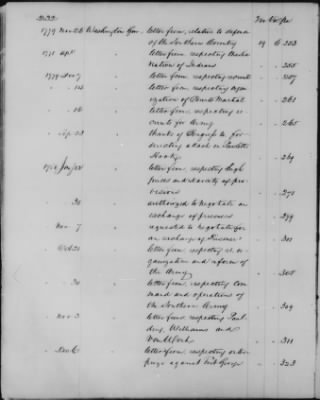 2422
Vol Pa
1779 Nov 26 Washington Gen. letter from, relative to defence
of the Southern Country 19 6 253
1771 Apl " letter from respecting
Nation of Indians " 255
1779 Aug 7 " letter from, respecting recruits " 257
" " letter from, respecting
ization of Provost Marshal " 261
" 16 " letter from, respecting re
cruits for Army " 265
Sep 23 " thanks of Congress to, for
directing attack on Paulus
Hook " 269
Jan " letter from, respecting high
prices and scarcity of pro
visions " 275
" 30 " authorized to negotiate an
exchange of prisoners " 299
Nov 7 " requested to negotiate for
an exchange of Prisoners " 301
Oct 21 " letter from, respecting re or
ganization and reform of
the Army " 305
" 30 " letter from, respecting Com
mand and operations of
the Southern Army " 309
Nov 3 " letter from, respecting Paul
ding, Williams and
Van Wert " 311
Nov 6 " letter from, respecting enter
prize against Fort George " 323